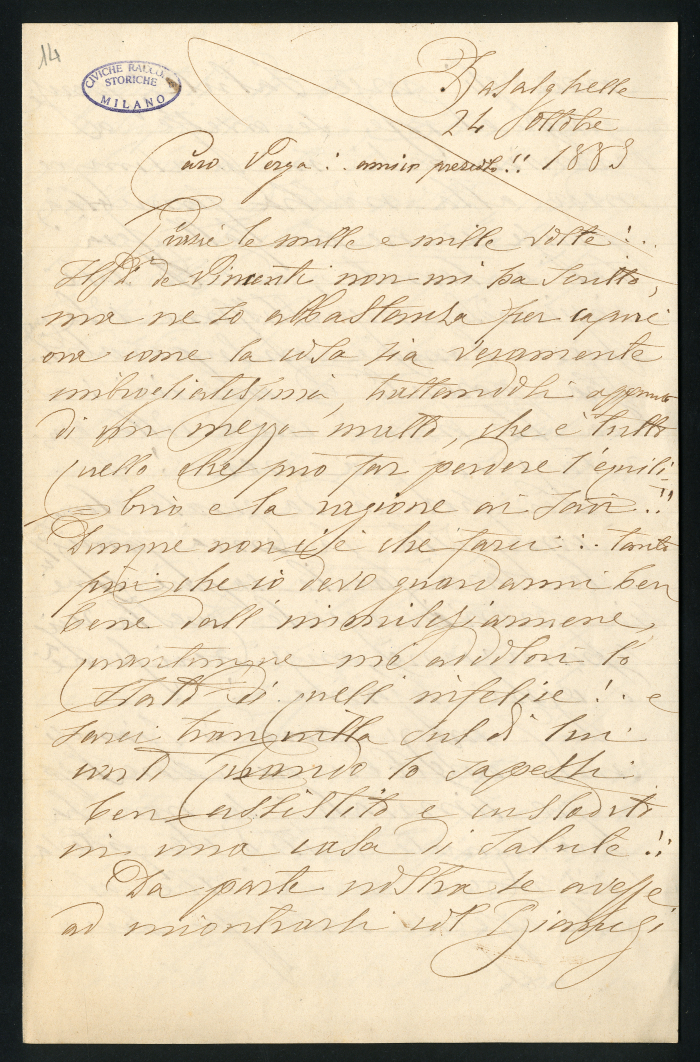 14
CIVICHE RACCOLTE
STORICHE
MILANO
Basalghelle
24 Ottobre
Caro Verga: amico prezioso!! 1883
Grazie le mille e mille volte!..
Il de Pimenti non mi ha scritto,
ma ne so abbastanza per capire
ora come la cosa sia veramente
imbrogliatissima, trattandosi appunto
di un mezzo-matto, che è tutto
quello che può far perdere l'equili-
brio e la ragione ai savi!!
Dunque non c'è che farci... tanto
più che io devo guardarmi ben
bene dall'immischiarmene,
quantunque mi addolori lo
stato di quell'infelice!.. e
sarei tranquilla sul di lui
conto quando lo sapessi
ben assistito e custodito
in una casa di salute!!
Da parte vostra se avesse
ad incontrarsi col